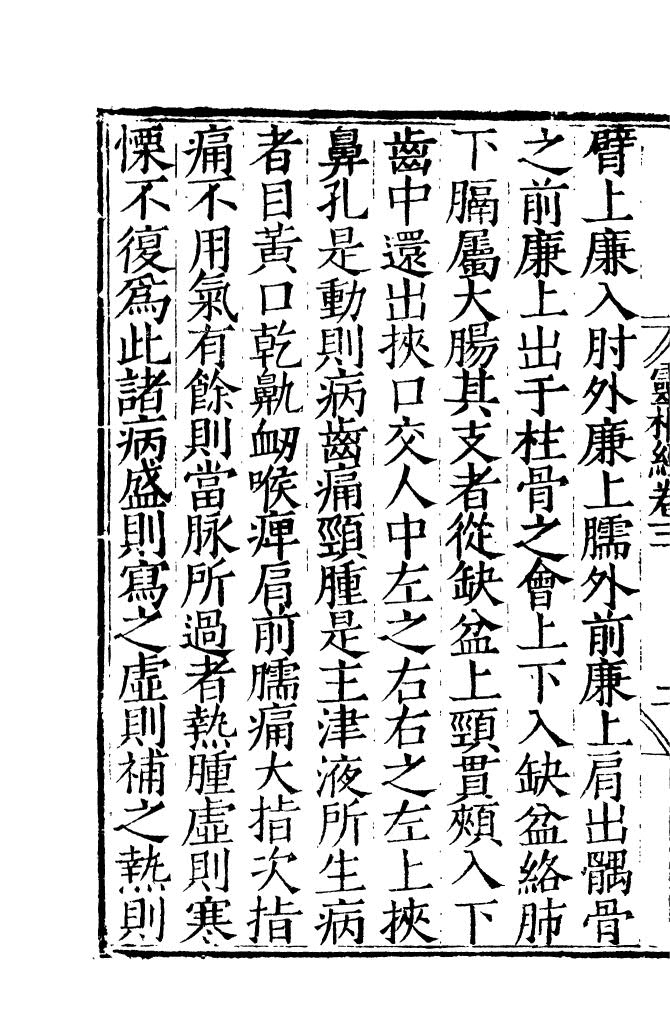 靈樞經卷三
臂上廉入肘外廉上臑外前廉上肩出髃骨
之前廉上出于柱骨之會上下入缺盆絡肺
下膈屬大腸其支者從缺盆上頸貫頰入下
齒中還出挾口交人中左之右右之左上挾
鼻孔是動則病齒痛頸腫是主津液所生病
者目黃口乾鼽衂喉痺肩前臑痛大指次指
痛不用氣有餘則當脉所過者熱腫虛則寒
慄不復爲此諸病盛則寫之虛則補之熱則